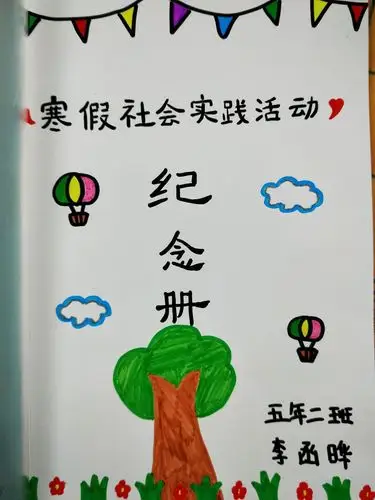 寒假社会实践活动
纪
念
册
五年二班
李函晔